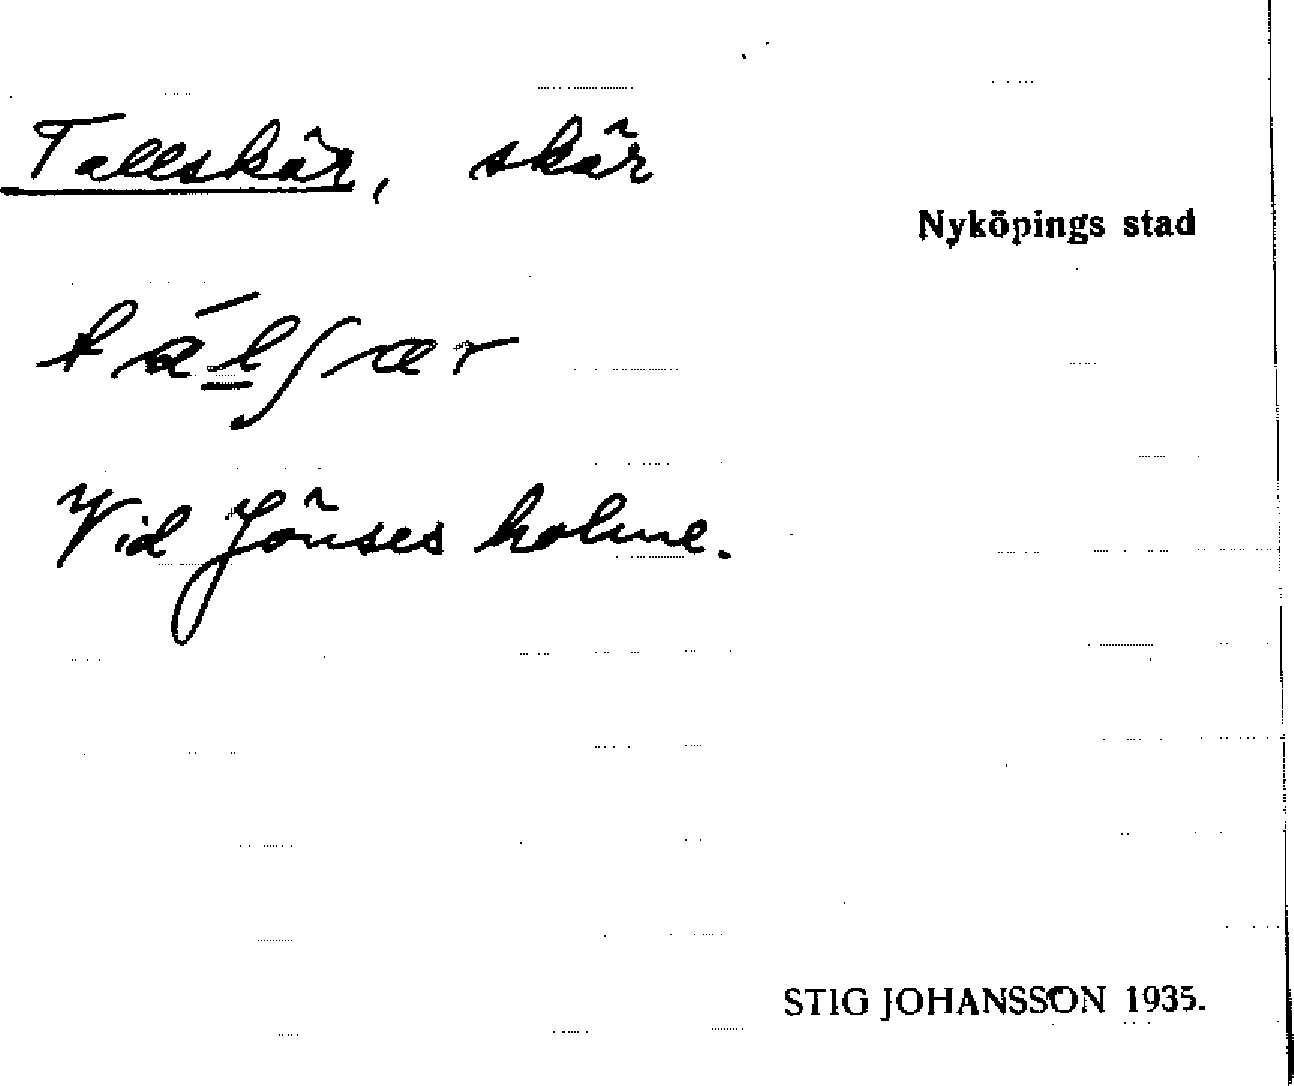 Tallskär, skär
Nyköpings stad
tálʃær
Vid Jönses holme.
STIG JOHANSSON 1935.